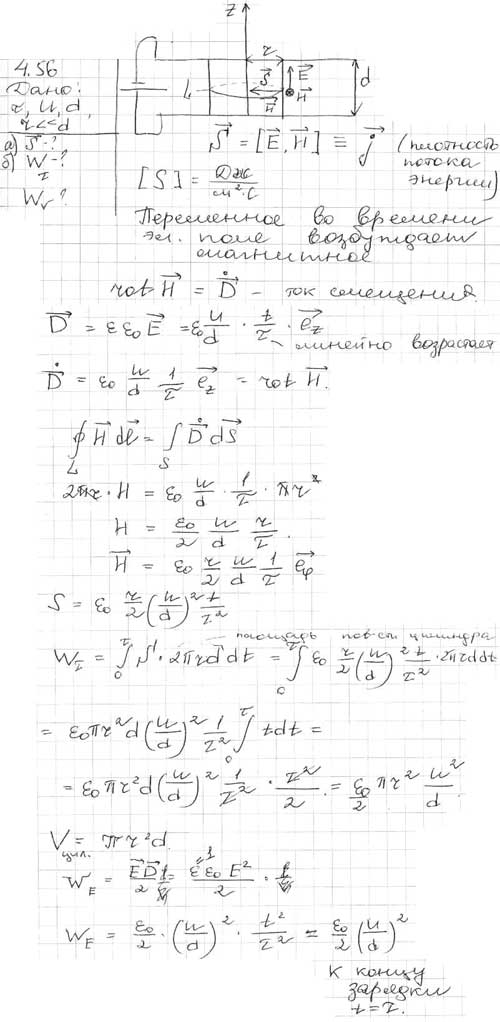 4.56
Дано:
r, U, d,
r << d
а) S⃗ - ?
б) W_τ - ?
W_V ?
z
r
L
S⃗
E⃗
H⃗
H⃗
d
S⃗ = [E⃗, H⃗] ≡ j⃗ (плотность потока энергии)
[S] = Дж / м²·с
Переменное во времени
эл. поле возбуждает
магнитное
rot H⃗ = Ḋ⃗ – ток смещения.
D⃗ = εε₀E⃗ = ε₀ U/d · t/τ · e⃗_z
линейно возрастает
Ḋ⃗ = ε₀ U/d 1/τ e⃗_z = rot H⃗.
∮_L H⃗ dl⃗ = ∫_S Ḋ⃗ dS⃗
2πr · H = ε₀ U/d · 1/τ · πr²
H = ε₀/2 U/d r/τ.
H⃗ = ε₀ r/2 U/d 1/τ e⃗_φ
S = ε₀ r/2 (U/d)² t/τ²
площадь пов-сти цилиндра
W_τ = ∫₀^τ S · 2πrd dt = ∫₀^τ ε₀ r/2 (U/d)² t/τ² · 2πrd dt
= ε₀πr²d (U/d)² 1/τ² ∫₀^τ t dt =
= ε₀πr²d (U/d)² 1/τ² · τ²/2 = ε₀/2 πr² U²/d.
V_цил. = πr²d.
W_E = E⃗D⃗/2 = εε₀E²/2
W_E = ε₀/2 · (U/d)² · t²/τ² = ε₀/2 (U/d)²
к концу
зарядки
t = τ.